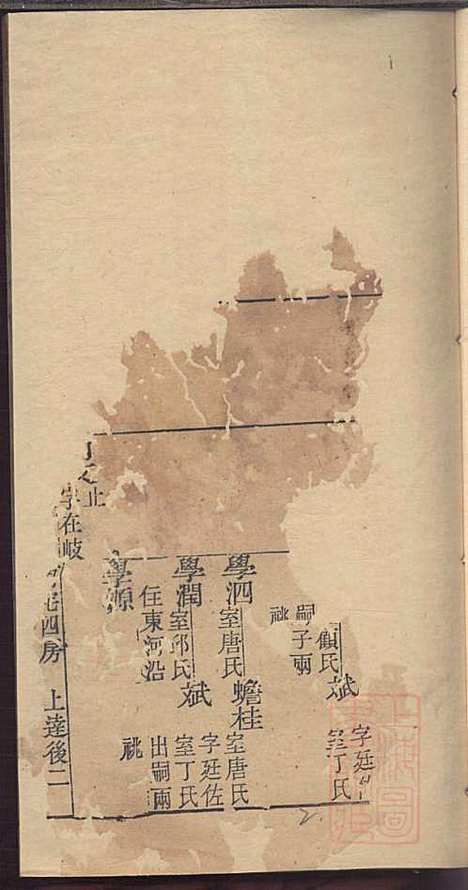 顧氏
嗣子兩
祧
斌
字廷
室丁氏
學泗
室唐氏
蟾桂
室唐氏
學潤
室邱氏
住東河沿
斌
字廷佐
室丁氏
出嗣兩
祧
學源
止
字在岐
四房
上達後二